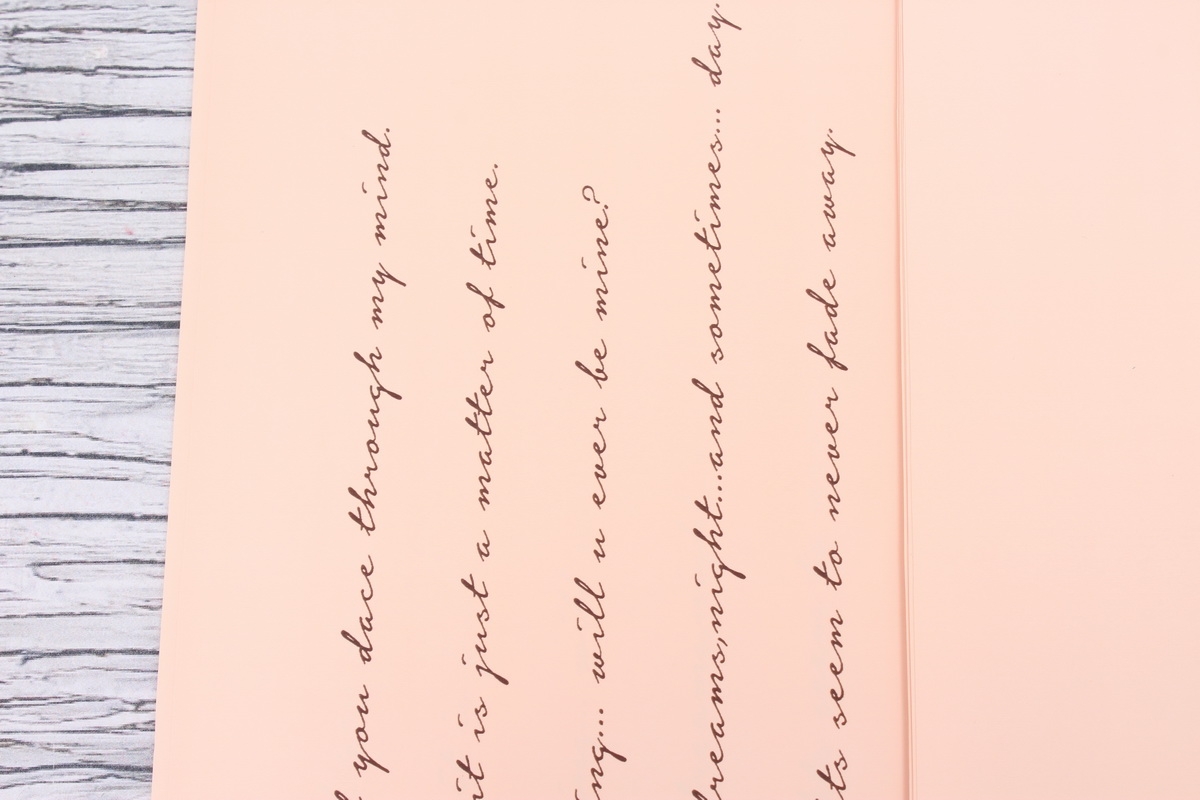 you dace through my mind.
it is just a matter of time.
will u ever be mine?
dreams,night...and sometimes... day.
seem to never fade away.